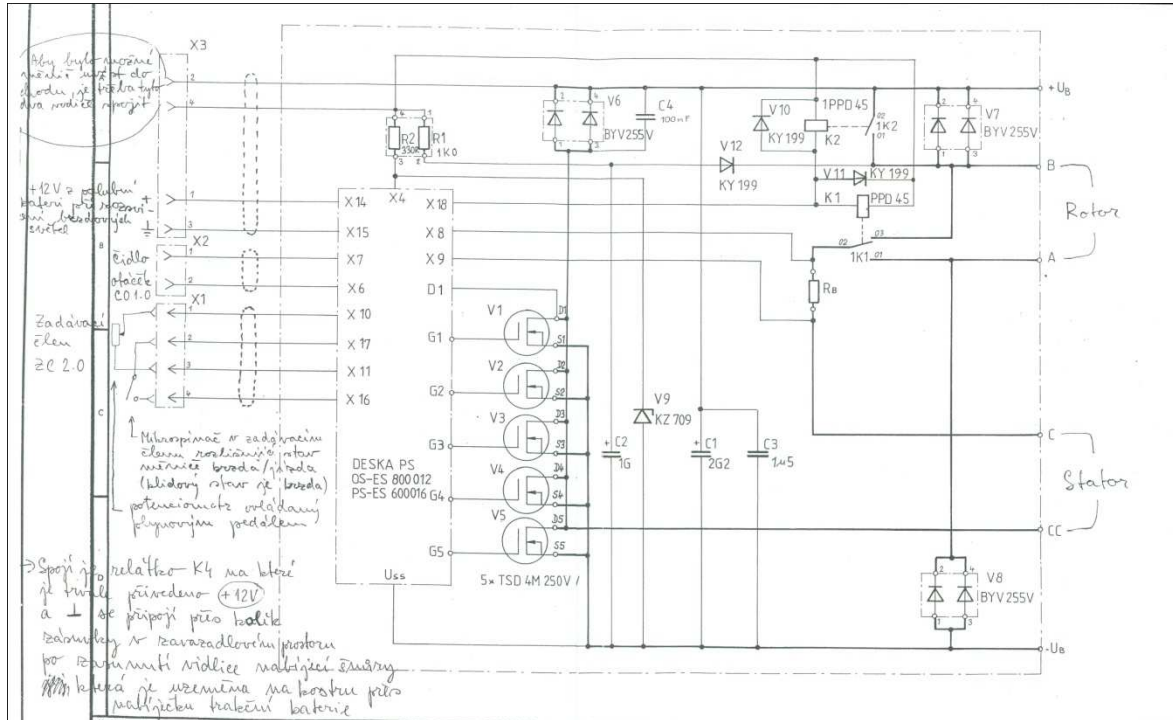 X3
Aby bylo možné
měnič uvést do
chodu, je třeba tyto
dva vodiče spojit
2
4
+12V z palubní
baterie při
brzdových
světel
+ 1
3
X2
čidlo
otáček
CO1.0
1
2
X1
Zadávací
člen
ZC 2.0
1
2
3
4
A
B
C
Mikrospínač v zadávacím
členu rozlišující stav
měniče brzda/jízda
(klidový stav je brzda)
potenciometr ovládaný
plynovým pedálem
Spojí je relátko K4 na které
je trvale přivedeno +12V
a ⊥ se připojí přes kolík
zásuvky v zavazadlovém prostoru
po zasunutí vidlice nabíjecí šňůry
která je uzemněna na kostru přes
nabíječku trakční baterie
4 1
R2 R1
330R 1K0
3 2
X4
X14
X15
X7
X6
X10
X17
X11
X16
X18
X8
X9
D1
G1
G2
G3
G4
G5
DESKA PS
OS-ES 800012
PS-ES 600016
Uss
V1
D1
S1
V2
D2
S2
V3
D3
S3
V4
D4
S4
V5
D5
S5
5x TSD 4M 250V /
2 4
V6
BYV255V
1 3
C4
100nF
V10
KY199
1PPD45
K2
02
1K2
01
2 4
V7
BYV255V
1 3
V12
KY199
V11
KY199
K1
PPD45
02
03
1K1
01
RB
V9
KZ709
+ C2
1G
+ C1
2G2
C3
1µ5
2 4
V8
BYV255V
1 3
+UB
B
Rotor
A
C
Stator
CC
-UB